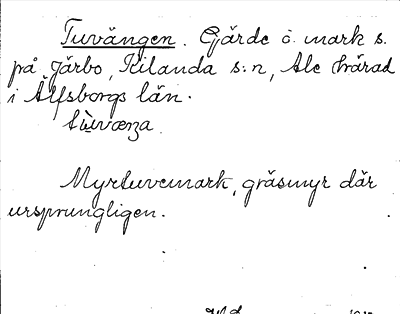 Tuvängen. Gärde o. mark s.
på Järbo, Kilanda s:n, Ale härad
i Älfsborgs län.
Myrtuvemark, gräsmyr där
ursprungligen.